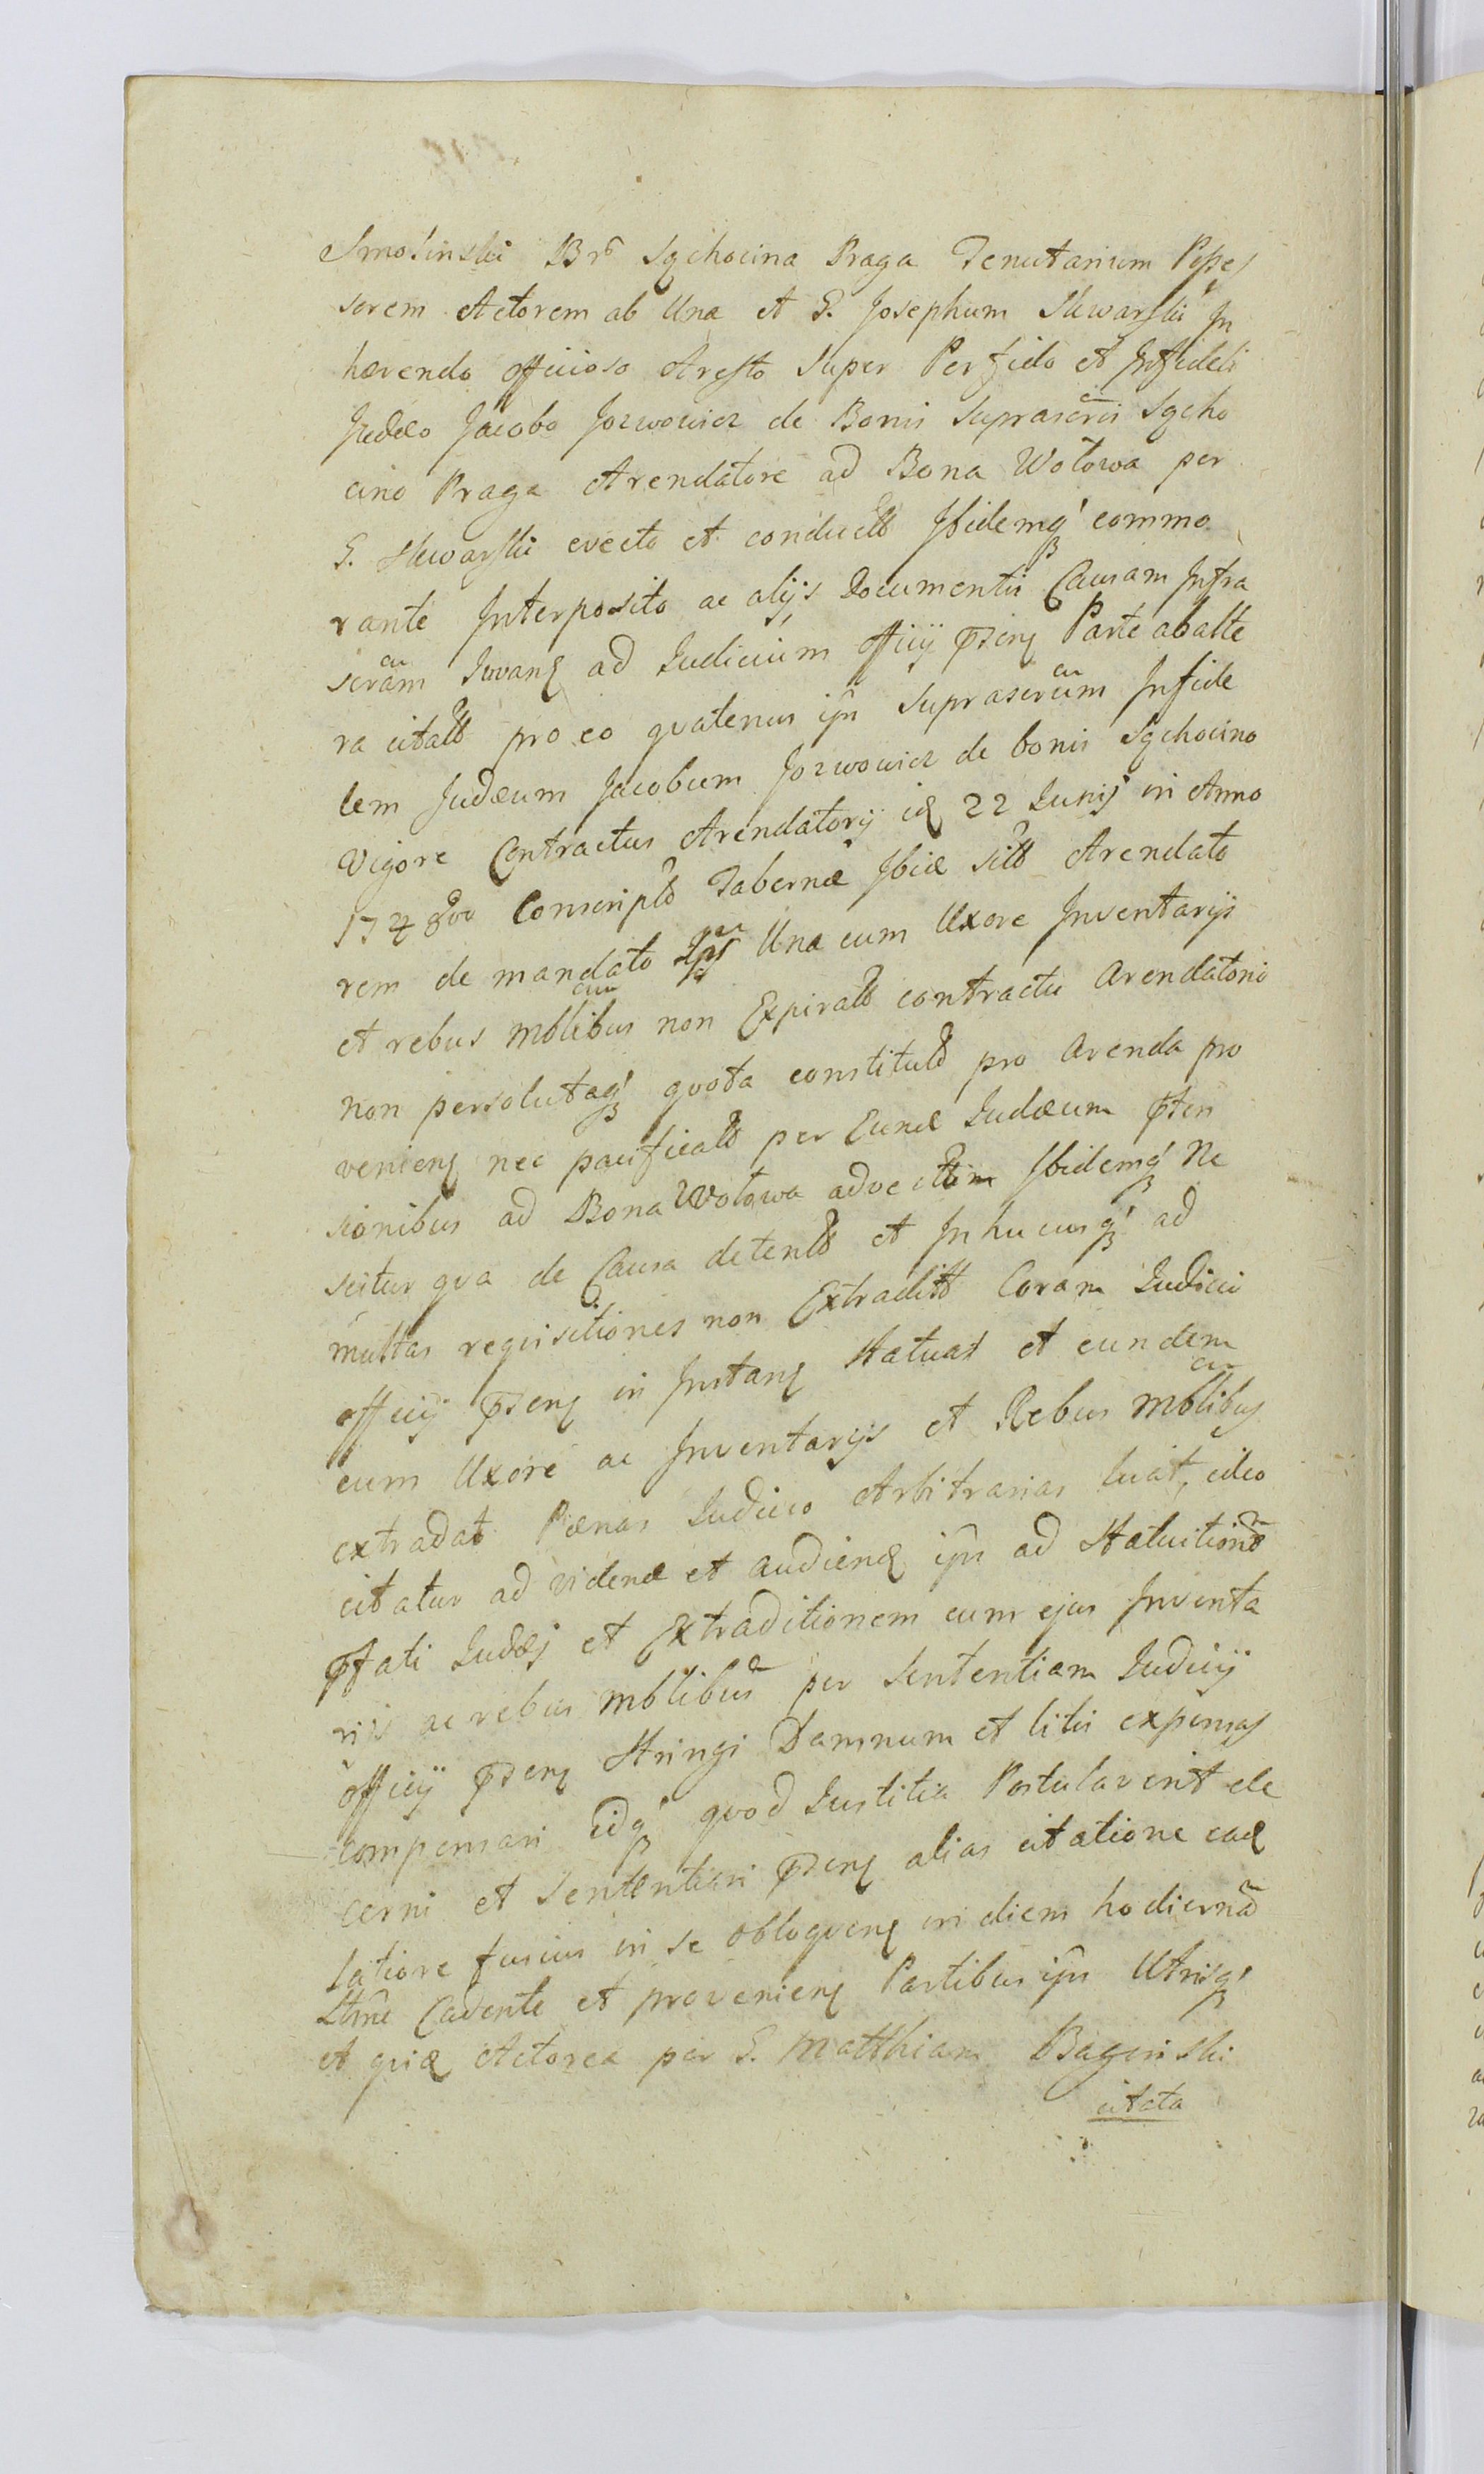 Smolinski Br̃ Sąchocina Praga Tenutarium Posses
sorem Actorem ab Una et G. Josephum Skwarski In
hærendo officioso Aresto Super Perfido et Infideli
Judæo Jacobo Jozwowicz de Bonis Suprascr̃is Sącho
cino Praga Arendatore ad Bona Wotowa per
G. Skwarski evecto et conducto Ibidemq commo
rante Interposito ac alijs Documentis Causam Infra
scr̃am Iuvanꝫ ad Iudicium officij præsenꝫ Parte ab alte
ra citato pro eo quatenus ip̃e Suprascr̃um Infide
lem Judæum Jacobum Jozwowicz de bonis Sąchocino
Vigore Contractus Arendatorij die 22 Iunij in Anno
1748vo Conscripto Tabernæ Ibid sito Arendato
rem de mandato Una cum Uxore Inventarijs
et rebus mblibus non Expirato contractu Arendatorio
non persolutaq quota constituto pro Arenda pro
venienꝫ nec pacificato per Eund Iudæum præten
sionibus ad Bona Wotowa advectum Ibidemq Ne
scitur qua de Causa detento et In hucusq ad
multas requisitiones non Extradito Coram Iudicio
officij præsenꝫ in Instanꝫ Statuat et eundem
cum Uxore ac Inventarijs et Rebus mblibus
extradat Pænas Iudicio Arbitrarias luat, ideo
citatur ad vidend et audiend ip̃m ad Statuition̄e
præfati Iudæj et Extraditionem cum ejus Inventa
rijs ac rebus mblibus per Sententiam Iudicij
officij præsenꝫ Stringi Damnum et litis expensas
compensari idq quod Iustitia Postulaverit de
cerni et Sententiari præsenꝫ alias citatione ead
latiore fusius in se obloquenꝫ in diem hodierná
Ltme Cadente et provenienꝫ Partibus ip̃is Utrisq
et quid Actorea per G. Matthiam Baginski
citata